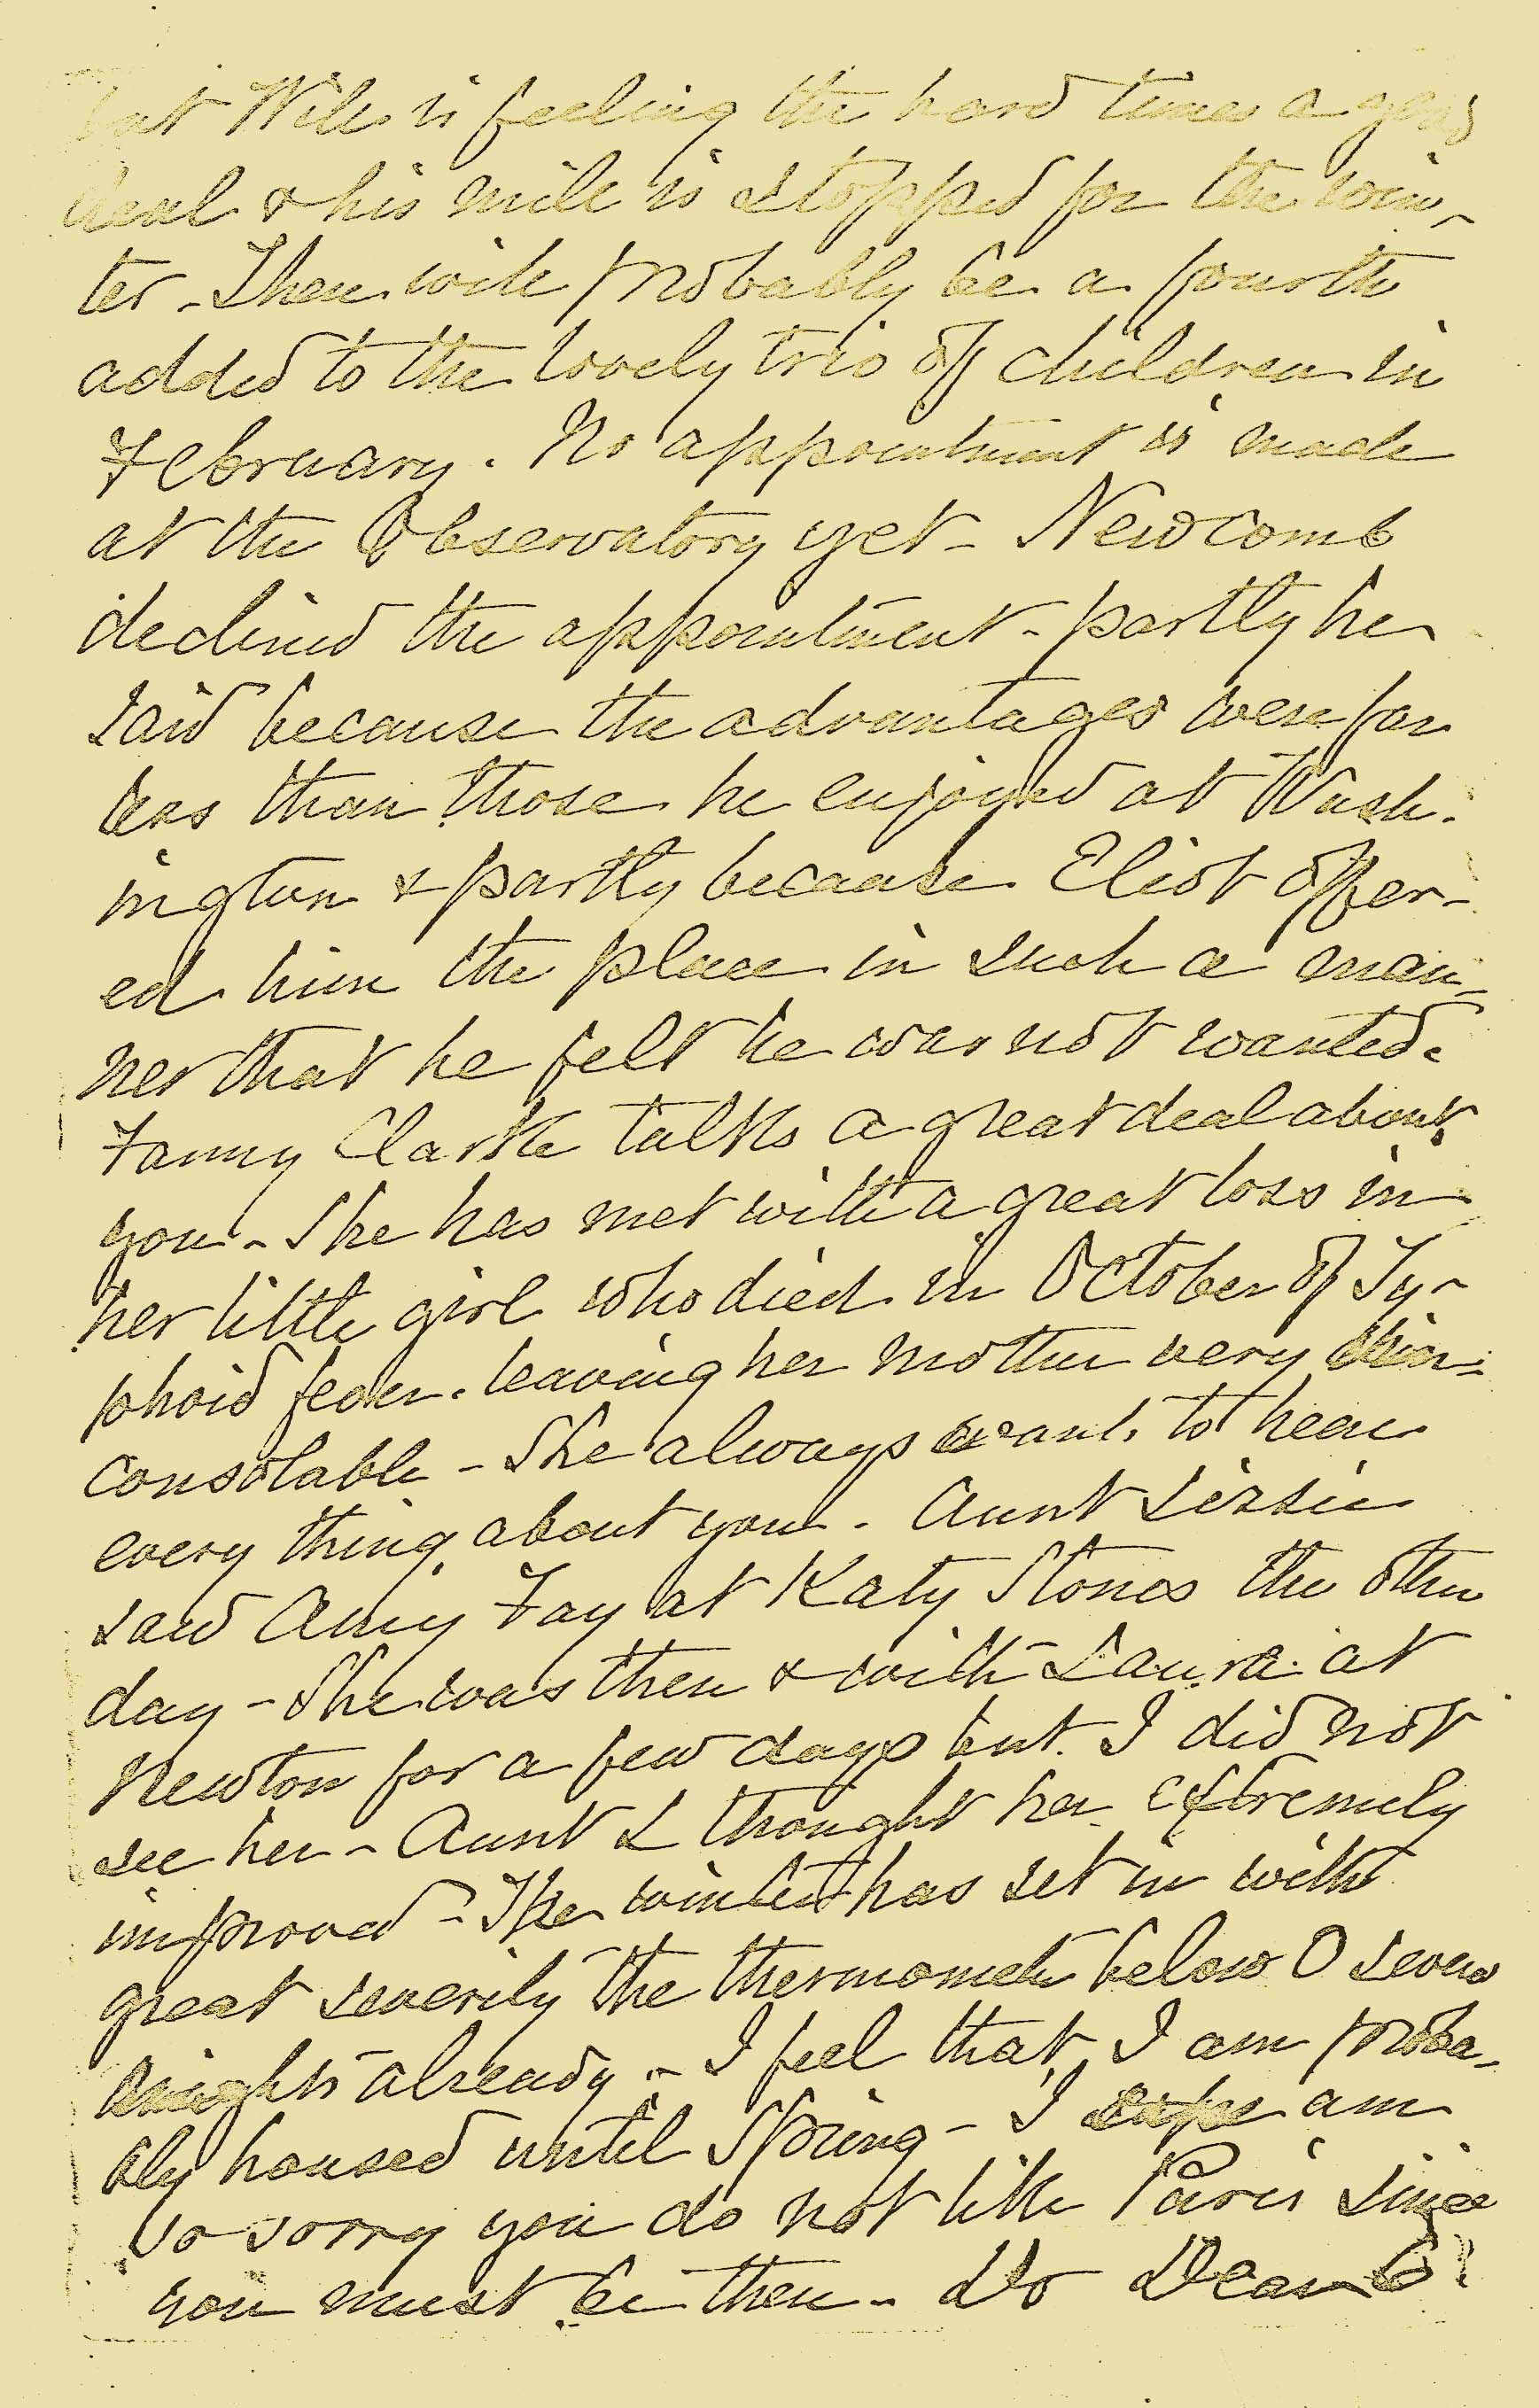 but Will is feeling the hard times a good
deal & his mill is stopped for the win-
ter - There will probably be a fourth
added to the lovely trio of children in
February. No appointment is made
at the Observatory yet - Newcomb
declined the appointment - partly he
said because the advantages were far
less than those he enjoyed at Wash-
ington & partly because Eliot offer-
ed him the place in such a man-
ner that he felt he was not wanted.
Fanny Clarke talks a great deal about
you - She has met with a great loss in
her little girl who died in October of Ty-
phoid fever. leaving her mother very
consolable - She always wants to hear
every thing about you. Aunt Lizzie
saw Amy Fay at Katy Stones the other
day - She was there & with Laura at
Newton for a few days but I did not
see her - Aunt L thought her extremely
improved - The winter has set in with
great severity the thermometer below 0 seven
nights already - I feel that I am proba-
bly housed until Spring - I am
so sorry you do not like Paris since
you must be there - Do